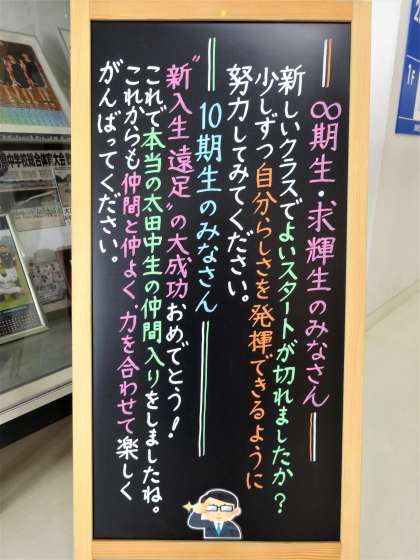 ∞期生・求輝生のみなさん
新しいクラスでよいスタートが切れましたか?
少しずつ自分らしさを発揮できるように
努力してみてください。
10期生のみなさん
"新入生遠足"の大成功おめでとう!
これで本当の太田中生の仲間入りをしましたね。
これからも仲間と仲よく、力を合わせて楽しく
がんばってください。
県中学校総合体育大会
1F